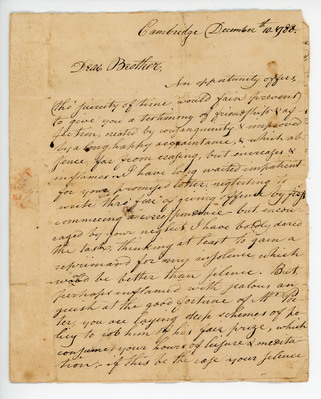 Cambridge December 10th 1788.
Dear Brother,
An opportunity offers,
tho' paucity of time, would fain prevent
to give you a testimony of friendship & af
fection, created by consanguinity & improved
by a long, happy acquaintance, & which ab
sence, far from erasing, but encreases &
inflames. I have long waited impatient
for your promised letter, neglecting
write thro' fear of giving offence by first
commencing a correspondence but encou
raged by your neglect I have boldly dared
the task, thinking at least to gain a
reprimand for my insolence which
would be better than silence. But
perhaps inflamed with jealous an
guish at the good fortune of Mr
ter, you are laying deep schemes of po
licy to rob him of his fair prize, which
consume your hours of leisure & medita
tion, if this be the case your silence